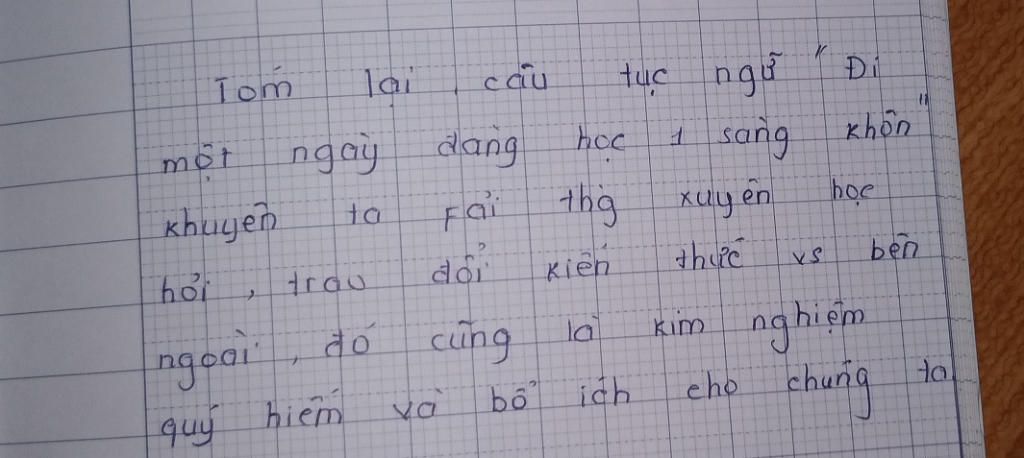 Tóm lại, câu tục ngữ "Đi
một ngày đàng học 1 sàng khôn"
khuyên ta Fải thg xuyên học
hỏi, trao đổi kiến thức vs bên
ngoài, đó cũng là kim nghiệm
quý hiếm và bổ ích cho chúng ta